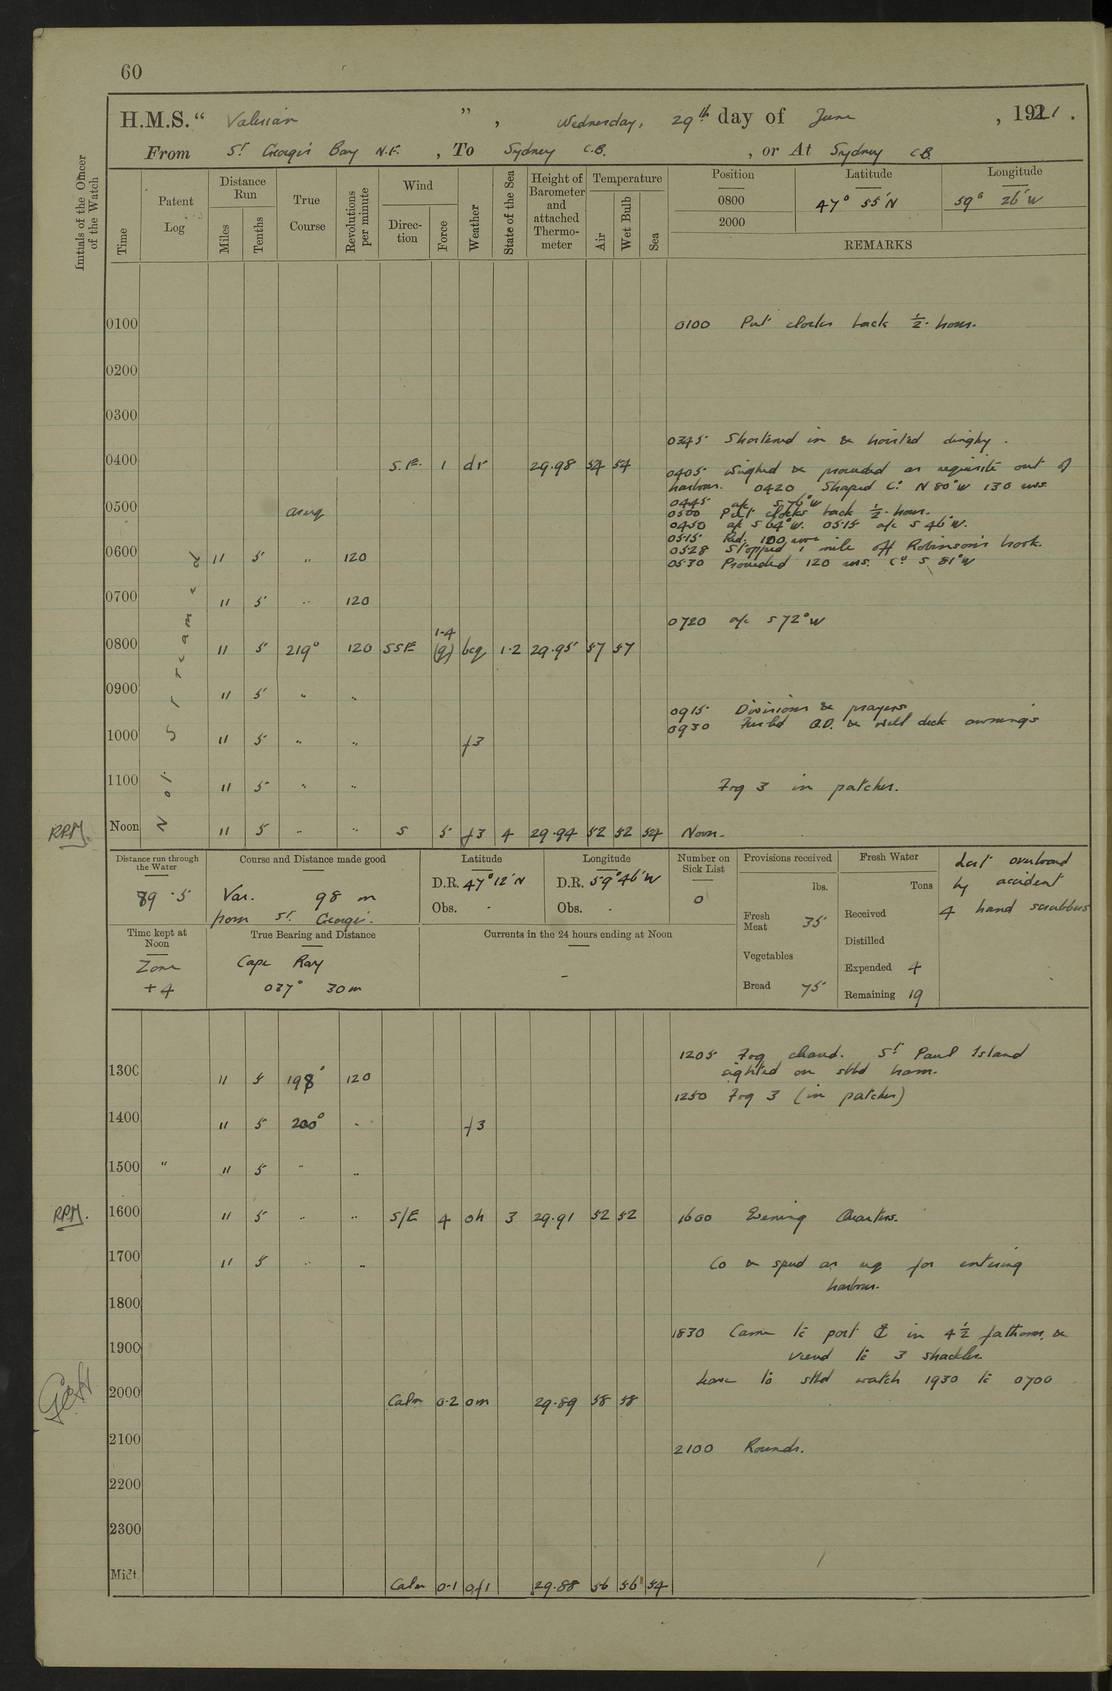 60
H.M.S. " Valerian " , Wednesday, 29th day of June , 1921 .
From St Georges Bay N.F. , To Sydney C.B. , or At Sydney C.B.
Initials of the Officer of the Watch
Time
Patent Log
Distance Run
Miles
Tenths
True Course
Revolutions per minute
Wind
Direction
Force
Weather
State of the Sea
Height of Barometer and attached Thermometer
Temperature
Air
Wet Bulb
Sea
Position Latitude Longitude
0800 47° 55' N 59° 26' W
2000
REMARKS
0100 0100 Put clocks back ½ hour.
0200
0300
0345 Shortened in & hoisted dinghy.
0400 S.E. 1 dr 29.98 54 54
0405 Weighed & proceeded as requisite out of
harbour. 0420 Shaped Co N 80° W 130 revs
0445 a/c S 76° W
0500 asreq 0500 Put clocks back ½ hour.
0450 a/c S 64° W. 0515 a/c S 46° W.
0515 Red. 100 revs
0528 Stopped 1 mile off Robinsons hook.
0600 11 5 " 120 0530 Proceeded 120 revs. Co S 81° W
0700 11 5 " 120
0720 a/c S 72° W
Not Streamed
0800 11 5 219° 120 SSE 1-4 (g) bcq 1.2 29.95 57 57
0900 11 5 " "
0915 Divisions & prayers
0930 Furled Q.D. & well deck awnings
1000 11 5 " " f3
1100 11 5 " " Fog 3 in patches.
RPM. Noon 11 5 " " S 5 f3 4 29.94 52 52 54 Noon.
Distance run through the Water
89.5
Course and Distance made good
Var. 98 m
from St. Georges.
Latitude
D.R. 47° 12' N
Obs. -
Longitude
D.R. 59° 46' W
Obs. -
Number on Sick List
0
Provisions received
lbs.
Fresh Meat 35
Vegetables
Bread 75
Fresh Water
Tons
Received
Distilled
Expended 4
Remaining 19
Lost overboard
by accident
4 hand scrubbers
Time kept at Noon
Zone
+4
True Bearing and Distance
Cape Ray
037° 30m
Currents in the 24 hours ending at Noon
-
1205 Fog cleared. St Paul Island
sighted on stbd beam.
1300 11 5 198° 120
1250 Fog 3 (in patches)
1400 11 5 200° " f3
1500 " 11 5 " "
RPM. 1600 11 5 " " S/E 4 oh 3 29.91 52 52 1600 Evening Quarters.
1700 11 5 " " Co & speed as req for entering
harbour.
1800
1830 Came to port ⚓ in 4½ fathoms, &
veered to 3 shackles
1900
have to stbd watch 1930 to 0700
2000 Calm 0.2 om 29.89 58 58
2100 2100 Rounds.
2200
2300
Midt. Calm 0.1 of1 29.88 56 56 54